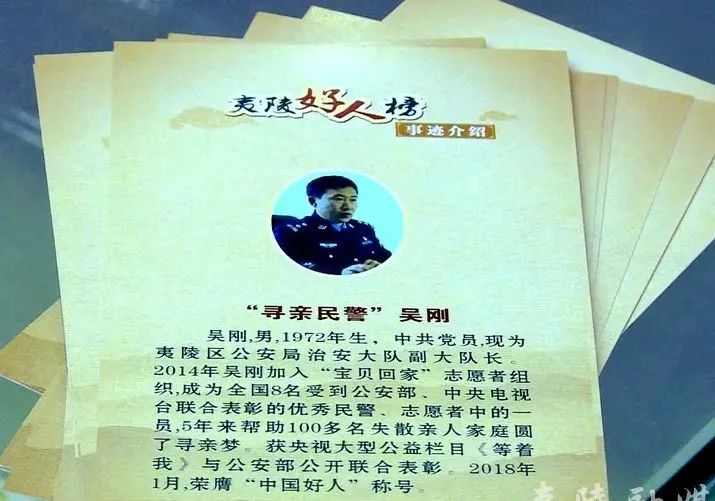 夷陵好人榜
事迹介绍
“寻亲民警”吴刚
吴刚,男,1972年生，中共党员,现为
夷陵区公安局治安大队副大队长。
2014年吴刚加入“宝贝回家”志愿者组
织,成为全国8名受到公安部、中央电视
台联合表彰的优秀民警、志愿者中的一
员,5年来帮助100多名失散亲人家庭圆
了寻亲梦。获央视大型公益栏目《等着
我》与公安部公开联合表彰。2018年
1月,荣膺“中国好人”称号。